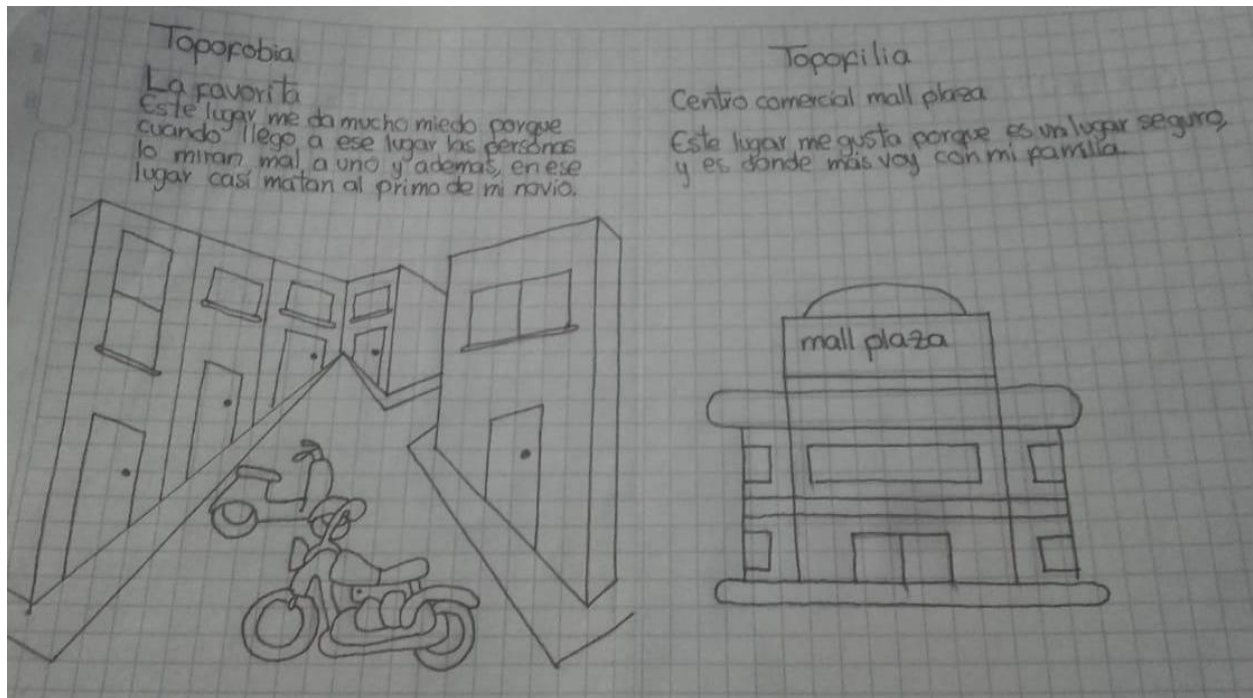 Topofobia
La favorita
Este lugar me da mucho miedo porque
cuando llego a ese lugar las personas
lo miran mal a uno y ademas, en ese
lugar casi matan al primo de mi novio.
Topofilia
Centro comercial mall plaza
Este lugar me gusta porque es un lugar seguro,
y es donde más voy con mi familia
mall plaza